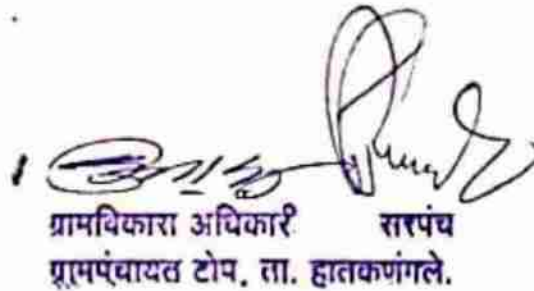 ग्रामविकास अधिकारी सरपंच
ग्रामपंचायत टोप, ता. हातकणंगले.